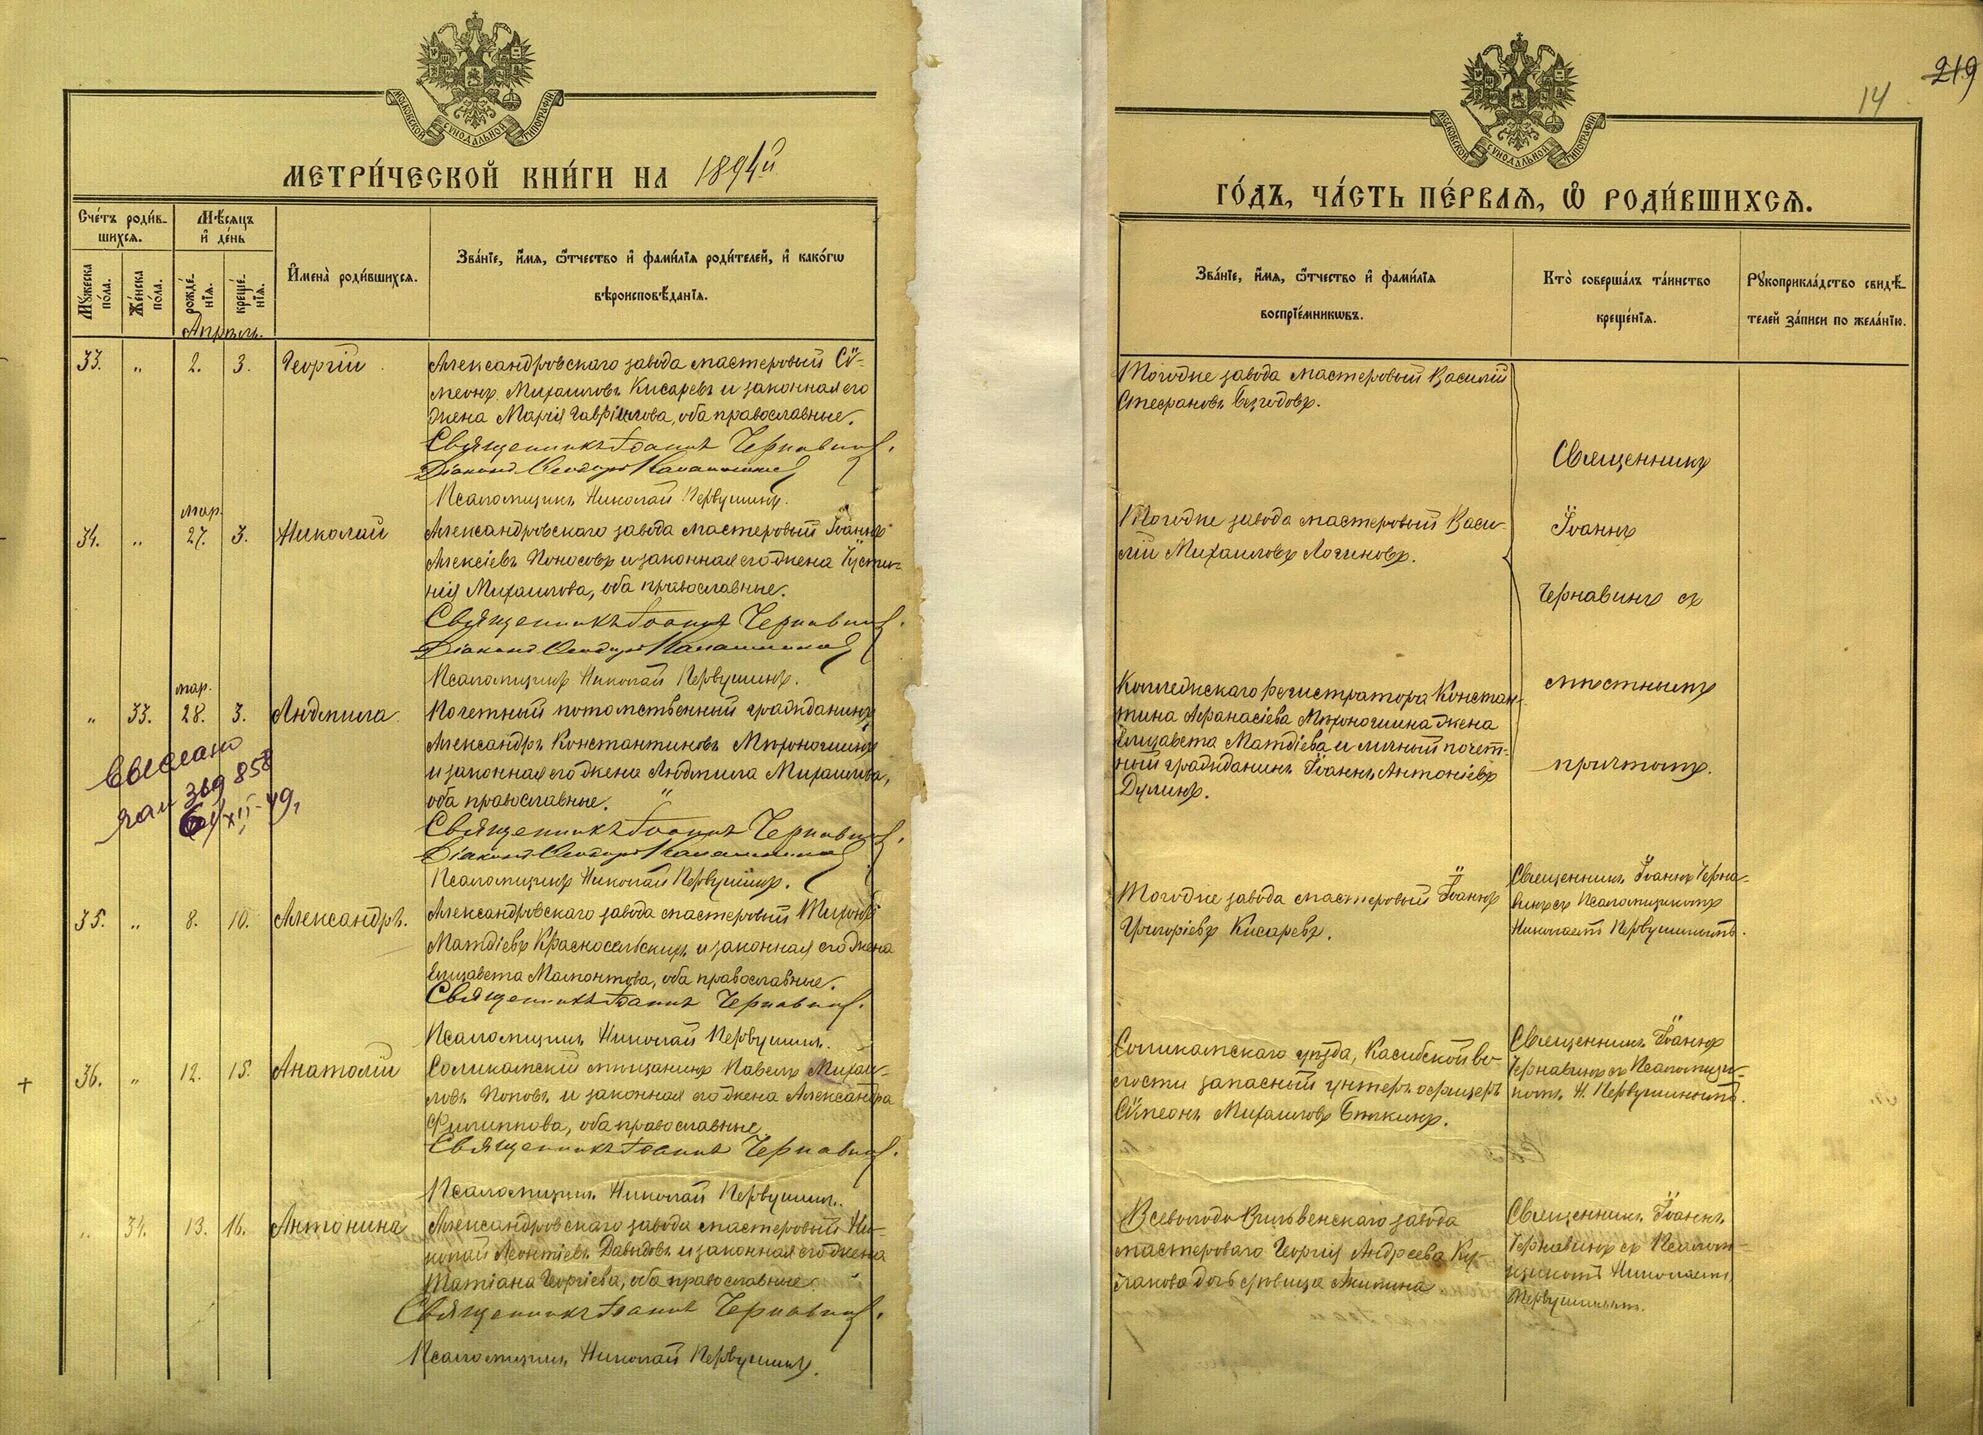 МОСКОВСКОЙ СѴНОДАЛЬНОЙ ТИПОГРАФІИ
МЕТРИ́ЧЕСКОЙ КНИ́ГИ НА 1894й
Счéтъ роди́в-
шихсѧ.
Мѣ́сѧцъ
и҆ дéнь
Мꙋ́жеска
пóла.
Жéнска
пóла.
рождé-
нїѧ.
крещé-
нїѧ.
И҆мена̀ роди́вшихсѧ.
Звáнїе, и҆́мѧ, ѻ҆́тчество и҆ фами́лїѧ роди́телей, и҆ какóгѡ
вѣроисповѣ́данїѧ.
Апрѣль.
33. " 2. 3. Георгій
Александровскаго завода мастеровый Сѵ-
меонъ Михаиловъ Кисаревъ и законная его
жена Марія Гавріилова, оба православные.
Священникъ Іоаннъ Чернавинъ.
Діаконъ Ѳеодоръ
Псаломщикъ Николай Первушинъ.
мар.
34. " 27. 3. Николай
Александровскаго завода мастеровый Іоаннъ
Алексіевъ Поносовъ и законная его жена Іусти-
нія Михаилова, оба православные.
Священникъ Іоаннъ Чернавинъ.
Діаконъ Ѳеодоръ
Псаломщикъ Николай Первушинъ.
мар.
" 33. 28. 3. Людмила
Почетный потомственный гражданинъ
Александръ Константиновъ
и законная его жена Людмила Михаилова,
оба православные.
Священникъ Іоаннъ Чернавинъ.
Діаконъ Ѳеодоръ
Псаломщикъ Николай Первушинъ.
Выслано
858
XII-49.
35. " 8. 10. Александръ.
Александровскаго завода мастеровый Тихонъ
Матѳіевъ Красносельскихъ и законная его жена
Елизавета Мамонтова, оба православные.
Священникъ Іоаннъ Чернавинъ.
Псаломщикъ Николай Первушинъ.
+ 36. " 12. 15. Анатолій
Соликамскій мѣщанинъ Павелъ Михаи-
ловъ Поповъ и законная его жена Александра
Филиппова, оба православные.
Священникъ Іоаннъ Чернавинъ.
Псаломщикъ Николай Первушинъ.
" 34. 13. 16. Антонина
Александровскаго завода мастеровый Ни-
колай Леонтіевъ Давыдовъ и законная его жена
Татіана Георгіева, оба православные.
Священникъ Іоаннъ Чернавинъ.
Псаломщикъ Николай Первушинъ.
219
14
МОСКОВСКОЙ СѴНОДАЛЬНОЙ ТИПОГРАФІИ
ГÓДЪ, ЧÁСТЬ ПÉРВАѦ, Ѽ РОДИ́ВШИХСѦ.
Звáнїе, и҆́мѧ, ѻ҆́тчество и҆ фами́лїѧ
воспрїéмникѡвъ.
Ктò совершáлъ тáинство
крещéнїѧ.
Рꙋкоприклáдство свидѣ́-
телей зáписи по желáнїю.
Тогоже завода мастеровый Василій
Стефановъ Безгодовъ.
Тогоже завода мастеровый Васи-
лій Михаиловъ Логиновъ.
Коллежскаго регистратора Констан-
тина Аѳанасіева жена
Елизавета Матѳіева и личный почет-
ный гражданинъ Іоаннъ Антоніевъ
Дулинъ.
Священникъ
Іоаннъ
Чернавинъ съ
мѣстнымъ
причтомъ.
Тогоже завода мастеровый Іоаннъ
Григоріевъ Кисаревъ.
Священникъ Іоаннъ Черна-
винъ съ Псаломщикомъ
Николаемъ Первушинымъ.
Соликамскаго уѣзда, Касибской во-
лости запасный унтеръ офицеръ
Сѵмеонъ Михаиловъ
Священникъ Іоаннъ
Чернавинъ съ Псаломщи-
комъ Н. Первушинымъ.
Всеволодо-Вильвенскаго завода
мастероваго Георгія Андреева
дочь дѣвица
Священникъ Іоаннъ
Чернавинъ съ Псалом-
щикомъ Николаемъ
Первушинымъ.